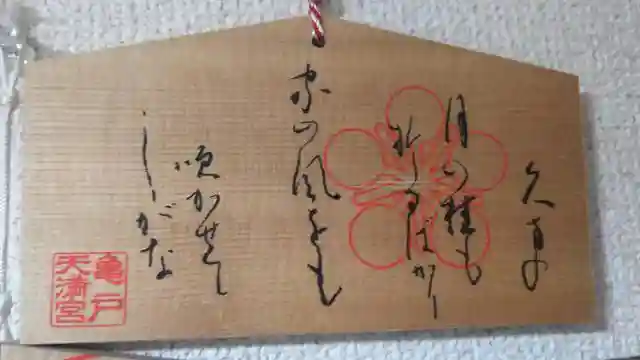 久方の
月の桂も
折るばかり
家の風をも
吹かせて
しがな
亀戸
天満宮